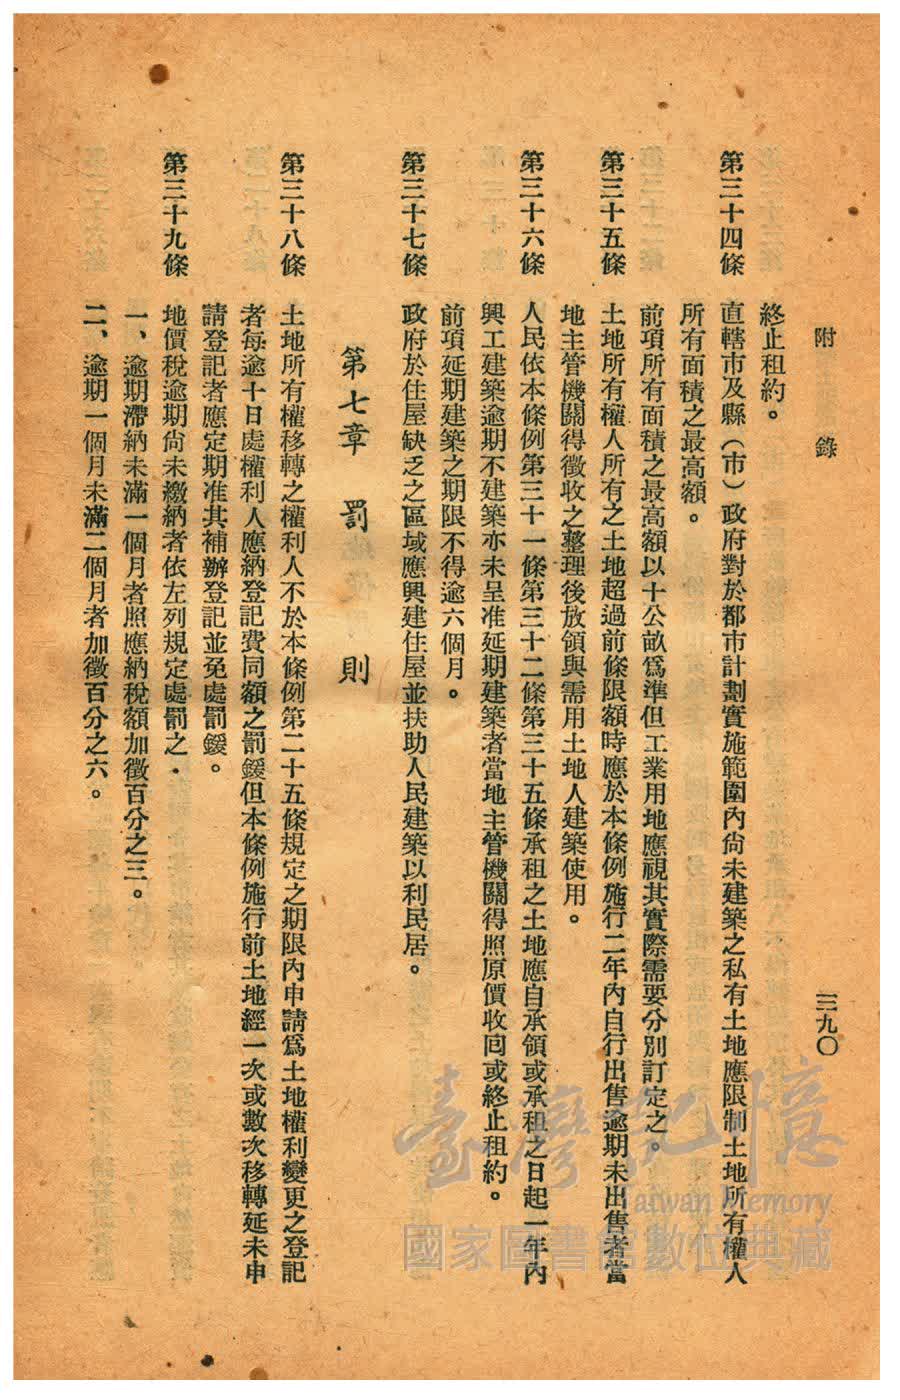 附錄
三九〇
終止租約。
第三十四條 直轄市及縣（市）政府對於都市計劃實施範圍內尙未建築之私有土地應限制土地所有權人
所有面積之最高額。
前項所有面積之最高額以十公畝爲準但工業用地應視其實際需要分別訂定之。
第三十五條 土地所有權人所有之土地超過前條限額時應於本條例施行二年內自行出售逾期未出售者當
地主管機關得徵收之整理後放領與需用土地人建築使用。
第三十六條 人民依本條例第三十一條第三十二條第三十五條承租之土地應自承領或承租之日起一年內
興工建築逾期不建築亦未呈准延期建築者當地主管機關得照原價收回或終止租約。
前項延期建築之期限不得逾六個月。
第三十七條 政府於住屋缺乏之區域應興建住屋並扶助人民建築以利民居。
第七章 罰則
第三十八條 土地所有權移轉之權利人不於本條例第二十五條規定之期限內申請爲土地權利變更之登記
者每逾十日處權利人應納登記費同額之罰鍰但本條例施行前土地經一次或數次移轉延未申
請登記者應定期准其補辦登記並免處罰鍰。
第三十九條 地價稅逾期尙未繳納者依左列規定處罰之．
一、逾期滯納未滿一個月者照應納稅額加徵百分之三。
二、逾期一個月未滿二個月者加徵百分之六。
臺灣記憶
Taiwan Memory
國家圖書館數位典藏